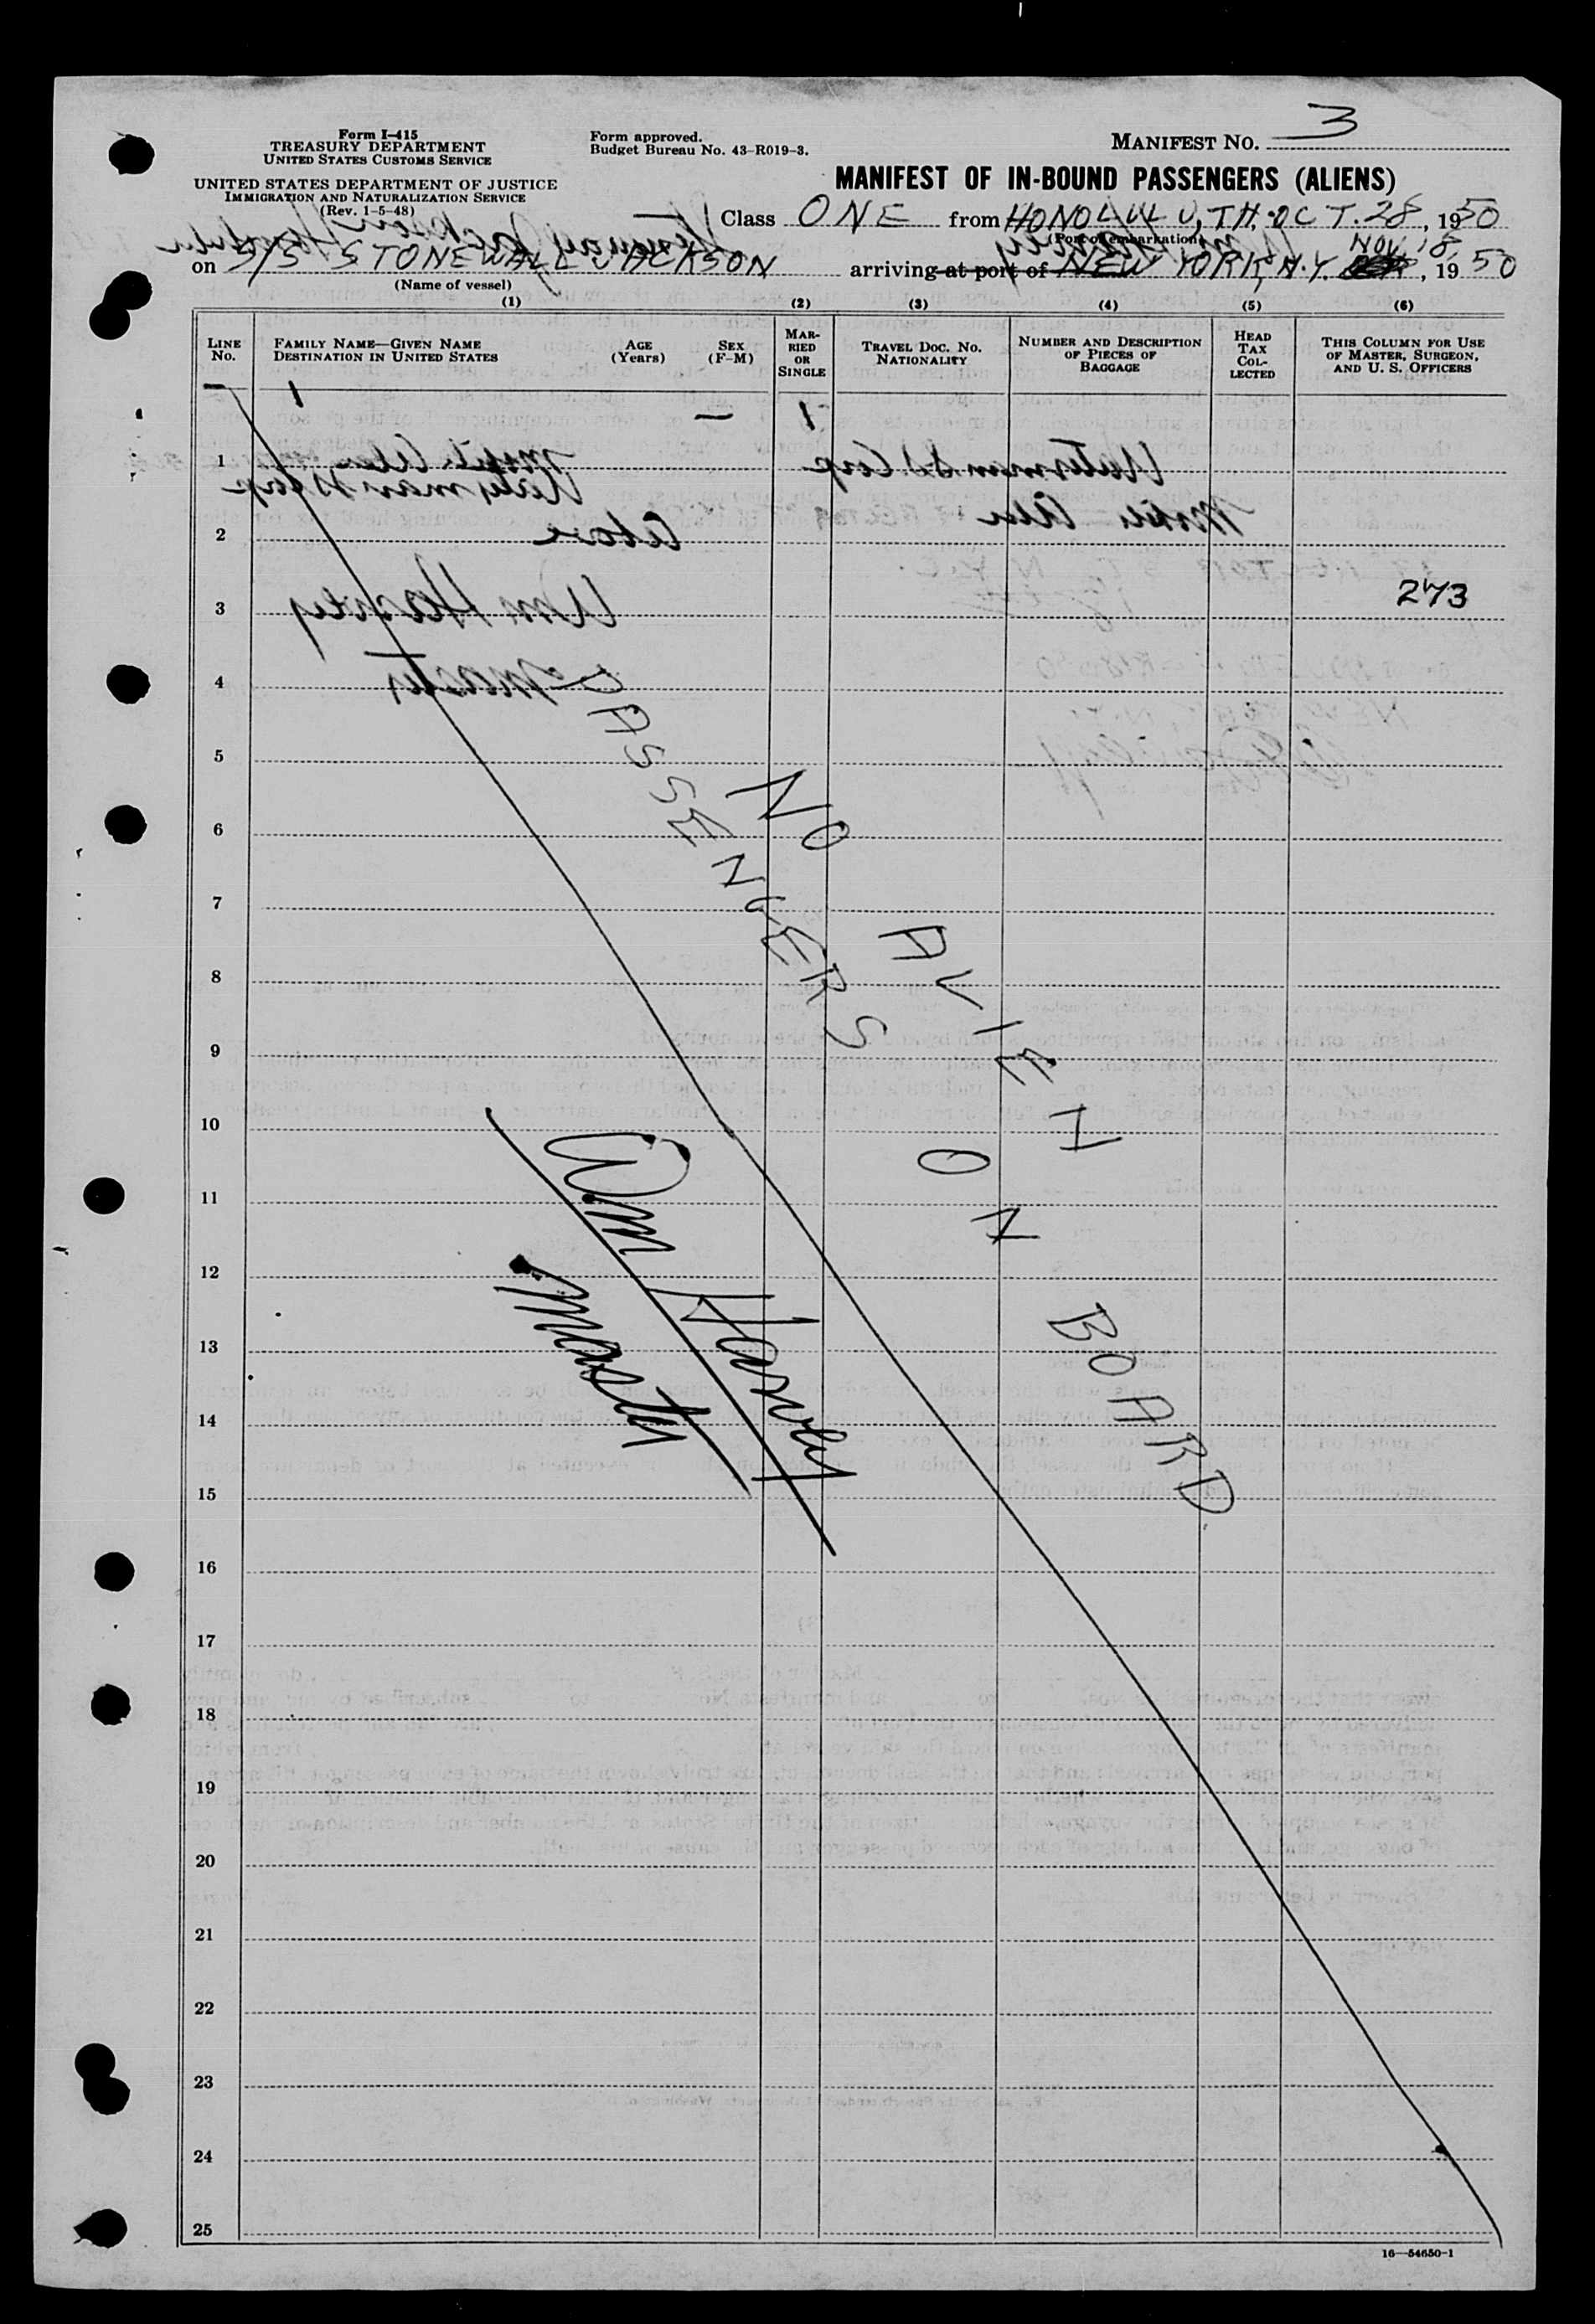 Form I-415
TREASURY DEPARTMENT
UNITED STATES CUSTOMS SERVICE
UNITED STATES DEPARTMENT OF JUSTICE
IMMIGRATION AND NATURALIZATION SERVICE
(Rev. 1-5-48)
Form approved.
Budget Bureau No. 43-R019-3.
MANIFEST NO. 3
MANIFEST OF IN-BOUND PASSENGERS (ALIENS)
Class ONE from HONOLULU, T.H. OCT. 28, 1950
(Port of embarkation)
on S/S STONEWALL JACKSON arriving at port of NEW YORK, N.Y. NOV. 18, 1950
(Name of vessel)
(1) (2) (3) (4) (5) (6)
LINE No.
FAMILY NAME—GIVEN NAME
DESTINATION IN UNITED STATES
AGE (Years)
SEX (F-M)
MARRIED OR SINGLE
TRAVEL DOC. NO.
NATIONALITY
NUMBER AND DESCRIPTION OF PIECES OF BAGGAGE
HEAD TAX COLLECTED
THIS COLUMN FOR USE OF MASTER, SURGEON, AND U. S. OFFICERS
1
2
3
273
4
5
6
7
8
9
10
11
12
13
14
15
16
17
18
19
20
21
22
23
24
25
NO ALIEN PASSENGERS ON BOARD.
Wm Harvey
Master
16—54650-1